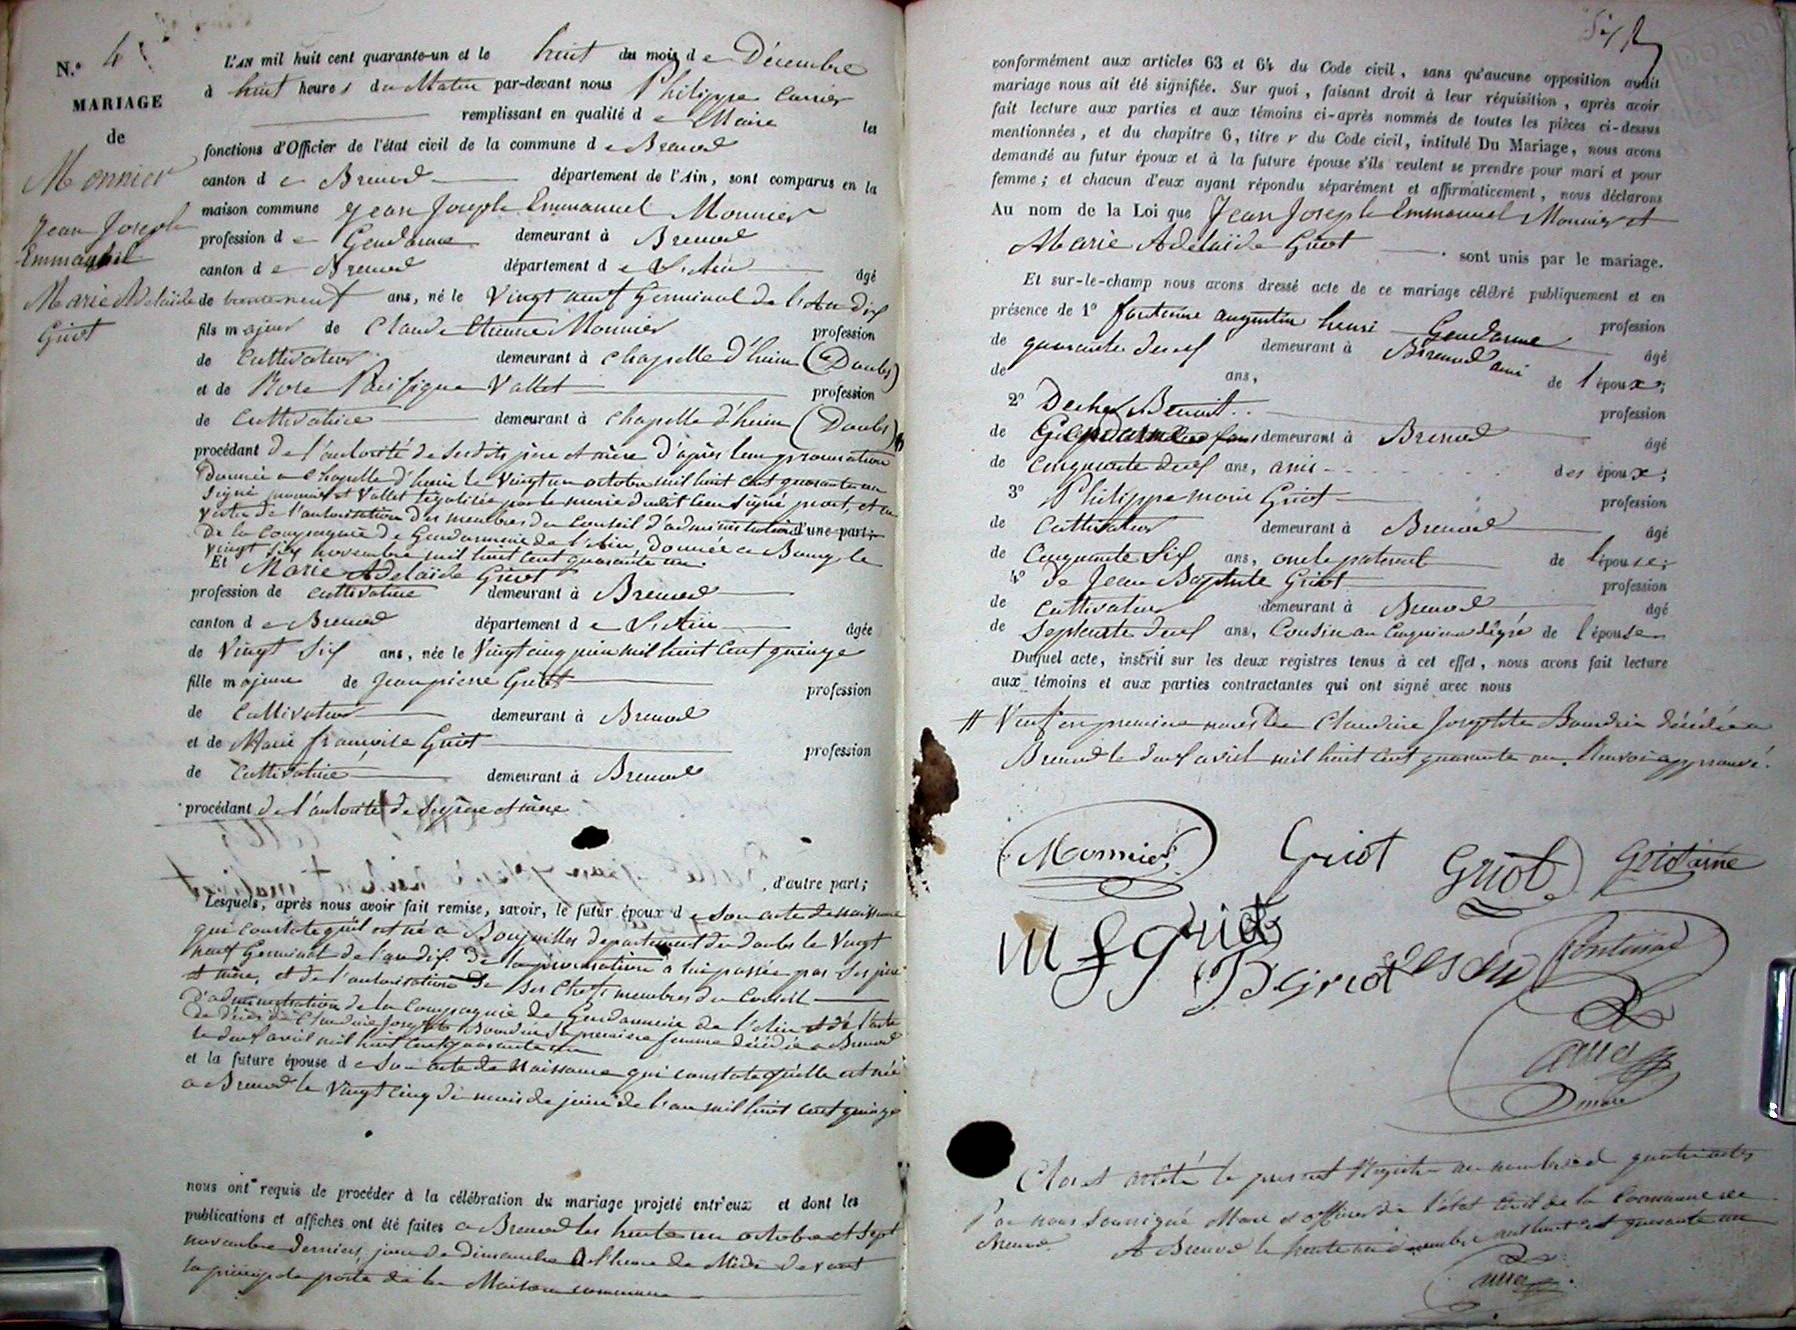 N.º 4
MARIAGE
de
Monnier
Jean Joseph
Emmanuel
Marie Adelaïde
Griot
L'AN mil huit cent quarante-un et le huit du mois de Décembre
à huit heures du Matin par-devant nous Philippe Carrier
remplissant en qualité de Maire les
fonctions d'Officier de l'état civil de la commune de Brenod
canton de Brenod département de l'Ain, sont comparus en la
maison commune Jean Joseph Emmanuel Monnier
profession de Gendarme demeurant à Brenod
canton de Brenod département de L'Ain âgé
de trenteneuf ans, né le Vingt neuf Germinal de l'An dix
fils majeur de Claude Etienne Monnier profession
de Cultivateur demeurant à Chapelle d'huin (Doubs)
et de Rose Pacifique Vallet profession
de Cultivatrice demeurant à Chapelle d'huin (Doubs) #
procédant de l'autorité de Sesdits père et mère d'après leur procuration
Donnée a Chapelle d'huin le Vingt un octobre mil huit cent quarante un
Signé monnier et Vallet légalisée par le maire dudit lieu Signé et en
vertu de l'autorisation des membres du Conseil d'administration d'une part;
De la Compagnie de Gendarmerie de l'Ain, Donnée a Bourg le
Vingt Six novembre mil huit cent quarante un.
Et Marie Adelaïde Griot
profession de cultivatrice demeurant à Brenod
canton de Brenod département de L'Ain âgée
de Vingt Six ans, née le Vingt cinq juin mil huit cent quinze
fille majeure de Jean pierre Griot profession
de Cultivateur demeurant à Brenod
et de Marie françoise Griot profession
de Cultivatrice demeurant à Brenod
procédant de l'autorité de Ses père et mère
, d'autre part;
Lesquels, après nous avoir fait remise, savoir, le futur époux de Son acte de naissance
qui constate qu'il est né a Boujailles departement du doubs le Vingt
neuf Germinal de l'an dix de la procuration a lui passée par Ses père
et mère, et de l'autorisation de Ses Chefs membres du Conseil
D'administration de la Compagnie de Gendarmerie de l'Ain et de l'acte
De décès de Claudine Josephte Sa première femme décédée a Brenod
le avril mil huit cent quarante un
et la future épouse de Son acte de Naissance qui constate qu'elle est née
a Brenod le Vingt cinq du mois de juin de l'an mil huit cent quinze
nous ont requis de procéder à la célébration du mariage projeté entr'eux et dont les
publications et affiches ont été faites a Brenod les trente un octobre et Sept
novembre derniers, jour de Dimanche à l'heure de Midi devant
la principale porte de la Maison commune
conformément aux articles 63 et 64 du Code civil, sans qu'aucune opposition audit
mariage nous ait été signifiée. Sur quoi, faisant droit à leur réquisition, après avoir
fait lecture aux parties et aux témoins ci-après nommés de toutes les pièces ci-dessus
mentionnées, et du chapitre 6, titre v du Code civil, intitulé Du Mariage, nous avons
demandé au futur époux et à la future épouse s'ils veulent se prendre pour mari et pour
femme; et chacun d'eux ayant répondu séparément et affirmativement, nous déclarons
Au nom de la Loi que Jean Joseph Emmanuel Monnier et
Marie Adelaïde Griot sont unis par le mariage.
Et sur-le-champ nous avons dressé acte de ce mariage célébré publiquement et en
présence de 1º fontenne augustin henri Gendarme profession
de quarante deux demeurant à Brenod ami âgé
de ans, de l'époux;
2º Benoit profession
de demeurant à Brenod âgé
de Cinquante deux ans, amis des époux;
3º Philippe marie Griot profession
de Cultivateur demeurant à Brenod âgé
de Cinquante Six ans, oncle paternel de l'épouse;
4º de Jean Baptiste Griot profession
de Cultivateur demeurant à Brenod âgé
de Septante deux ans, Cousin au Cinquième dégré de l'épouse
Duquel acte, inscrit sur les deux registres tenus à cet effet, nous avons fait lecture
aux témoins et aux parties contractantes qui ont signé avec nous
# Veuf en première noces de Claudine Josephte décédée a
Brenod le avril mil huit cent quarante un. Renvoi approuvé.
Monnier
Griot
Griot
M f Griot
JB griot
Fontenne
Carrier
maire
Clos et arrêté le present Registre au nombre de quatre actes
Par nous Soussigné Maire et officier de l'état Civil de la Commune de
Brenod. A Brenod le trente un décembre mil huit cent quarante un
Carrier